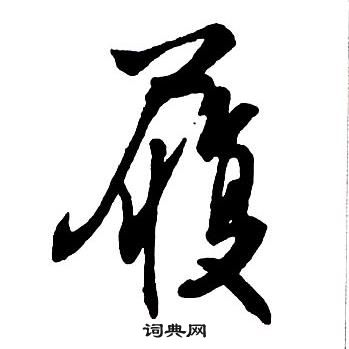 履
词典网